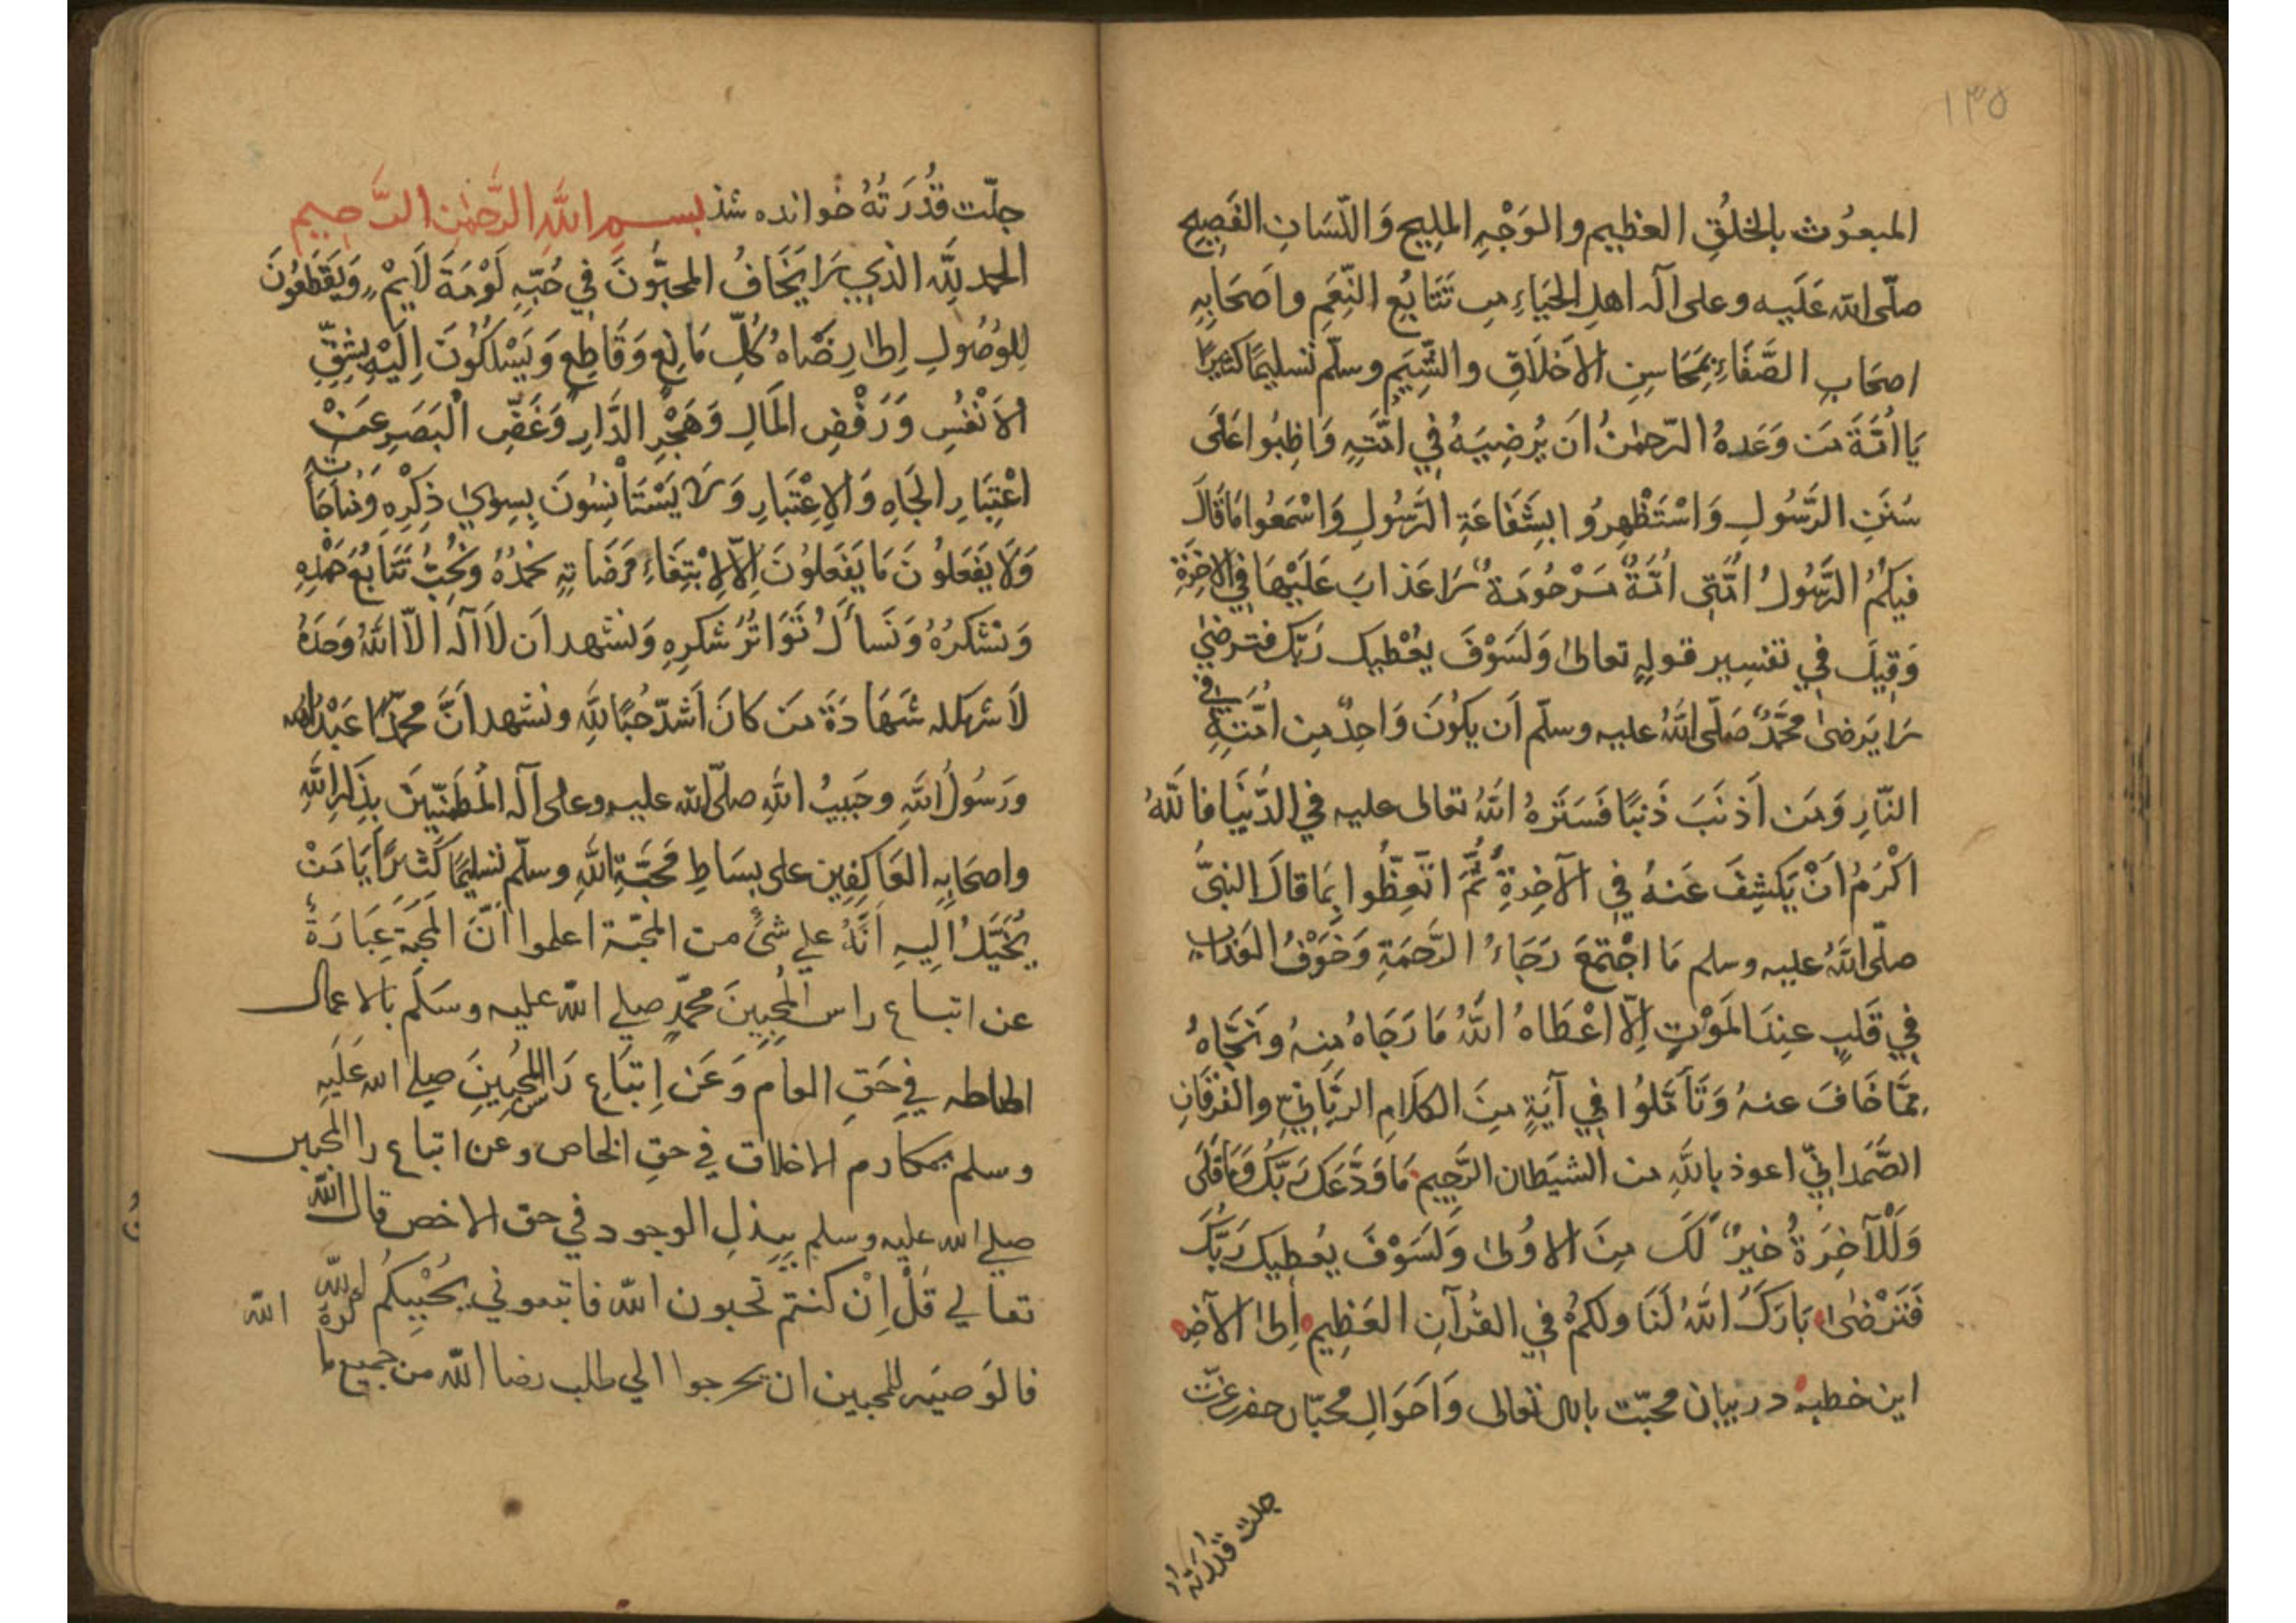 ١٣٥
المبعُوث بالخلُقِ العظیم والوَجْهِ الملِیحِ وَاللّسَانِ الفَصِیحِ
صلّی الله عَلَیه وعلی آله اهلِ الحَیَاءِ بِ تَتَابُعِ النِّعَمِ واَصحَابِهِ
اصحَابِ الصَّفَاءِ بِمَحَاسِنِ الاَخلَاقِ والشِّیَمِ وسلّم تسلیمًا کثیرًا
یَا اُمَّةَ مَن وَعَدهُ الرّحمٰنُ اَن یُرضِیَهُ فِي امَّتِهِ وَاظِبُوا عَلَی
سُنَنِ الرَّسُولِ وَاسْتَظْهِرُوا بِشَفَاعَةِ الرَّسُولِ وَاسْمَعُوا مَا قَالَ
فِیکُمُ الرَّسُولُ اُمَّتِی اُمَّةٌ مَرْحُومَةٌ لَا عَذابَ عَلَیْهَا فِي الاخِرَةِ
وَقِیلَ فِي تفسِیر قولِهِ تعالیٰ وَلَسَوْفَ یُعْطِیک رَبّک فترضیٰ
لَا یَرضیٰ محمَّدٌ صَلّی اللّٰهُ علیه وسلّم اَن یکُونَ وَاحِدٌ مِن امَّتِهِ فی
النّارِ وَمَن اَذنَبَ ذَنبًا فَسَتَرهُ اللّٰهُ تعالی علیه فِي الدُّنیَا فاللّٰهُ
اَکْرَمُ اَنْ یَکشِفَ عَنهُ فِي الآخِرةِ ثُمَّ اتَّعِظُوا بِمَا قالَ النبیُّ
صلّی اللّٰهُ علیه وسلم مَا اجْتَمَعَ رَجَاءُ الرَّحمَةِ وَخَوْفُ العَذابِ
فِي قَلبٍ عِندَ المَوْتِ اِلّا اعْطَاهُ اللّٰهُ مَا رَجَاهُ مِنهُ وَنَجَّاهُ
مِمَّا خَافَ عنهُ وَتَأَمَّلُوا فِي آیَةٍ مِنَ الکلَامِ الربَّانِيّ والفُرْقَانِ
الصَّمَدانِيّ اعوذ باللّٰهِ من الشیَطان الرَّجِیم مَا وَدَّعَکَ رَبّکَ وَمَا قَلَی
وَلَلْآخِرَةُ خیرٌ لَکَ مِنَ الاوُلیٰ وَلَسَوْفَ یُعطِیک رَبّکَ
فَتَرْضیٰ بَارَکَ اللّٰهُ لَنَا ولکمُ فِي القُرآنِ العَظِیم اِلیٰ الآخِر
این خطبه در بیان محبّت بالله تعالی وَاَحوَالِ محبّان حضرت عزّت
جلت قدرته
جلّت قُدْرَتُهُ خوانده شد بسم اللّٰهِ الرَّحمٰنِ الرَّحِیم
الحمد للّٰه الذي لَا یَخَافُ المحبُّونَ فِي حُبِّهِ لَوْمَةَ لَایِمٍ وَیَقْطَعُونَ
لِلوُصُولِ اِلیٰ رِضَاهُ کُلّ مَانِعٍ وَقَاطِعٍ وَیَسْلُکُونَ اِلَیْهِ بِشِقِّ
الاَنْفُسِ وَرَفْضِ المَالِ وَهَجْرِ الدَّارِ وَغَضِّ الْبَصَرِ عَنْ
اعْتِبَارِ الجَاهِ وَالاِعْتِبَارِ وَلَا یَسْتَأْنِسُونَ بِسِویٰ ذِکْرِهِ وَمُنَاجَاتِهِ
وَلَا یَفعَلُونَ مَا یَفعَلُونَ اِلَّا لِابْتِغَاءِ مَرَضَاتِهِ نَحمَدُهُ وَنُحِبُّ تَتَابُعَ حَمْدِهِ
وَنشکرُهُ وَنَسأَلُ تَوَاتُرَ شکرِهِ وَنشهد اَن لَا آلٰه الّا اللّٰهُ وَحدَهُ
لَا شریک له شَهَادَةَ مَن کَانَ اَشدّ حُبًّا للّٰهِ ونشهد اَنَّ محمّدًا عَبْدُ الله
ورَسُولُ اللّٰهِ وحَبِیبُ اللّٰهِ صلّی الله علیه وعلی آله المُطمَئِنّیِنَ بِذِکرِ اللّٰهِ
واصحَابِهِ العَاکِفِین علی بِسَاطِ مَحبَّةِ اللّٰهِ وسلّم تسلیمًا کَثیرًا یَا مَنْ
یُخَیَّلُ اِلیهِ اَنَّهُ علي شئٍ من المحبّة اعلموا اَنّ المَحَبَّةَ عِبَارَةٌ
عن اتباع راس المُحِبِینَ محمّدٍ صلي اللّٰه علیه وسَلّم بالاعمال
الظاهره في حَقِ العام وَعَن اِتبَاعِ رَاس المُحِبِینَ صلي الله عَلَیهِ
وسلم بمکارم الاخلاق في حقِ الخاص وعن اتباع راس المحبین
صلي الله علیه وسلم ببذلِ الوجود في حق الاخص قال اللّٰه
تعالي قُلْ اِنْ کنتم تحبون اللّٰه فاتبعوني یُحْبِبکُم اللّٰه
فالوَصیَه للمحبین ان یخرجوا الي طلب رضا اللّٰه من جمیع ما